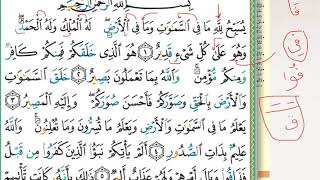 بِسْمِ اللَّهِ الرَّحْمَٰنِ الرَّحِيمِ
يُسَبِّحُ لِلَّهِ مَا فِي السَّمَٰوَٰتِ وَمَا فِي الْأَرْضِ ۖ لَهُ الْمُلْكُ وَلَهُ الْحَمْدُ ۖ
وَهُوَ عَلَىٰ كُلِّ شَيْءٍ قَدِيرٌ ١ هُوَ الَّذِي خَلَقَكُمْ فَمِنكُمْ كَافِرٌ
وَمِنكُم مُّؤْمِنٌ ۚ وَاللَّهُ بِمَا تَعْمَلُونَ بَصِيرٌ ٢ خَلَقَ السَّمَٰوَٰتِ
وَالْأَرْضَ بِالْحَقِّ وَصَوَّرَكُمْ فَأَحْسَنَ صُوَرَكُمْ ۖ وَإِلَيْهِ الْمَصِيرُ ٣
يَعْلَمُ مَا فِي السَّمَٰوَٰتِ وَالْأَرْضِ وَيَعْلَمُ مَا تُسِرُّونَ وَمَا تُعْلِنُونَ ۚ وَاللَّهُ
عَلِيمٌ بِذَاتِ الصُّدُورِ ٤ أَلَمْ يَأْتِكُمْ نَبَأُ الَّذِينَ كَفَرُوا مِن قَبْلُ
فَذَاقُوا وَبَالَ أَمْرِهِمْ وَلَهُمْ عَذَابٌ أَلِيمٌ ٥ ذَٰلِكَ بِأَنَّهُ كَانَت تَّأْتِيهِمْ
فَا
فِي
فُوا